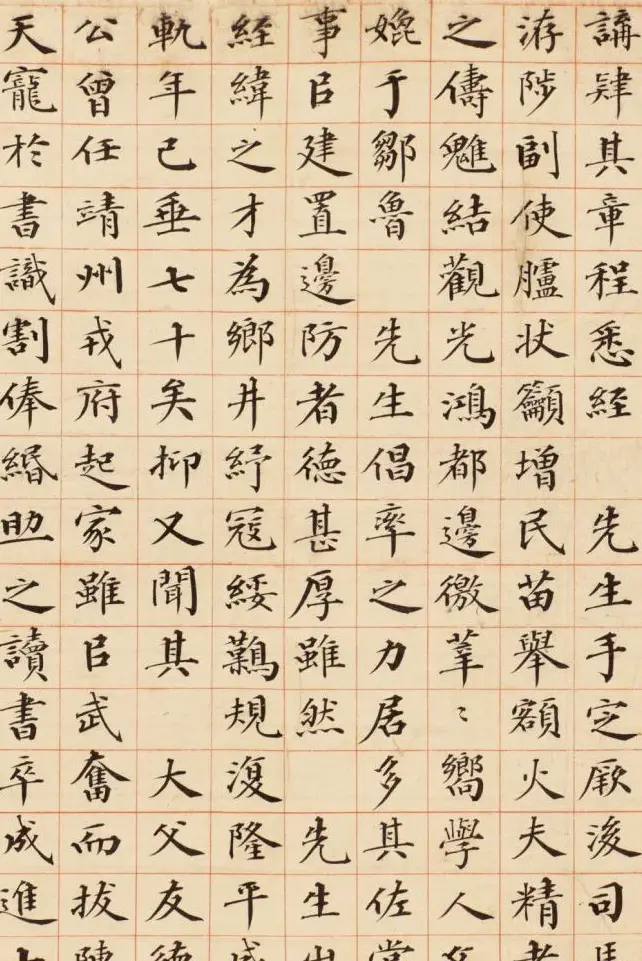 講肄其章程悉經 先生手定厥後司
洊陟副使臚狀籲增民苗舉額火夫精
之儔魋結觀光鴻都邊徼莘〻嚮學人
媲于鄒魯 先生倡率之力居多其佐
事㠯建置邊防者德甚厚雖然 先生
經緯之才為鄉井紓寇綏難規復隆平
軌年已垂七十矣抑又聞其 大父友
公曾任靖州戎府起家雖㠯武奮而拔
天寵於書識割俸緡助之讀書卒成進